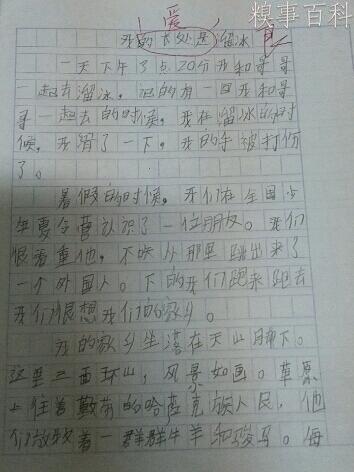 糗事百科
爱
我的长处是溜冰
一天下午了点20分我和哥哥
一起去溜冰，记的有一回我和哥
哥一起去的时候，我在溜冰的时
候，我滑了一下，我的手被打伤
了。
暑假的时候，我们在全国少
年夏令营认识了一位朋友。我们
很看重他，不从那里跳出来了
一个外国人。下的我们跑来跑去
我们很想我们的家乡。
我的家乡坐落在天山脚下。
这里三面环山，风景如画。草原
上住着勤劳的哈萨克族人民，他
们放牧着一群群牛羊和骏马。每